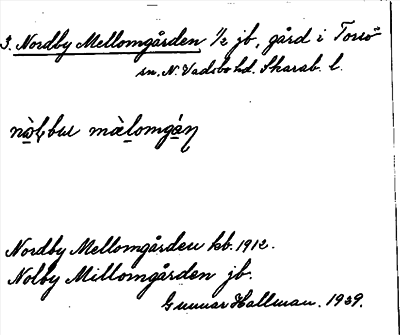 3. Nordby Mellomgården 1/2 jb, gård i Torsö
sn. N. Vadsbo hd. Skarab. l.
Nordby Mellomgården kb. 1912.
Nolby Millomgården jb.
Gunnar Hallman. 1939.